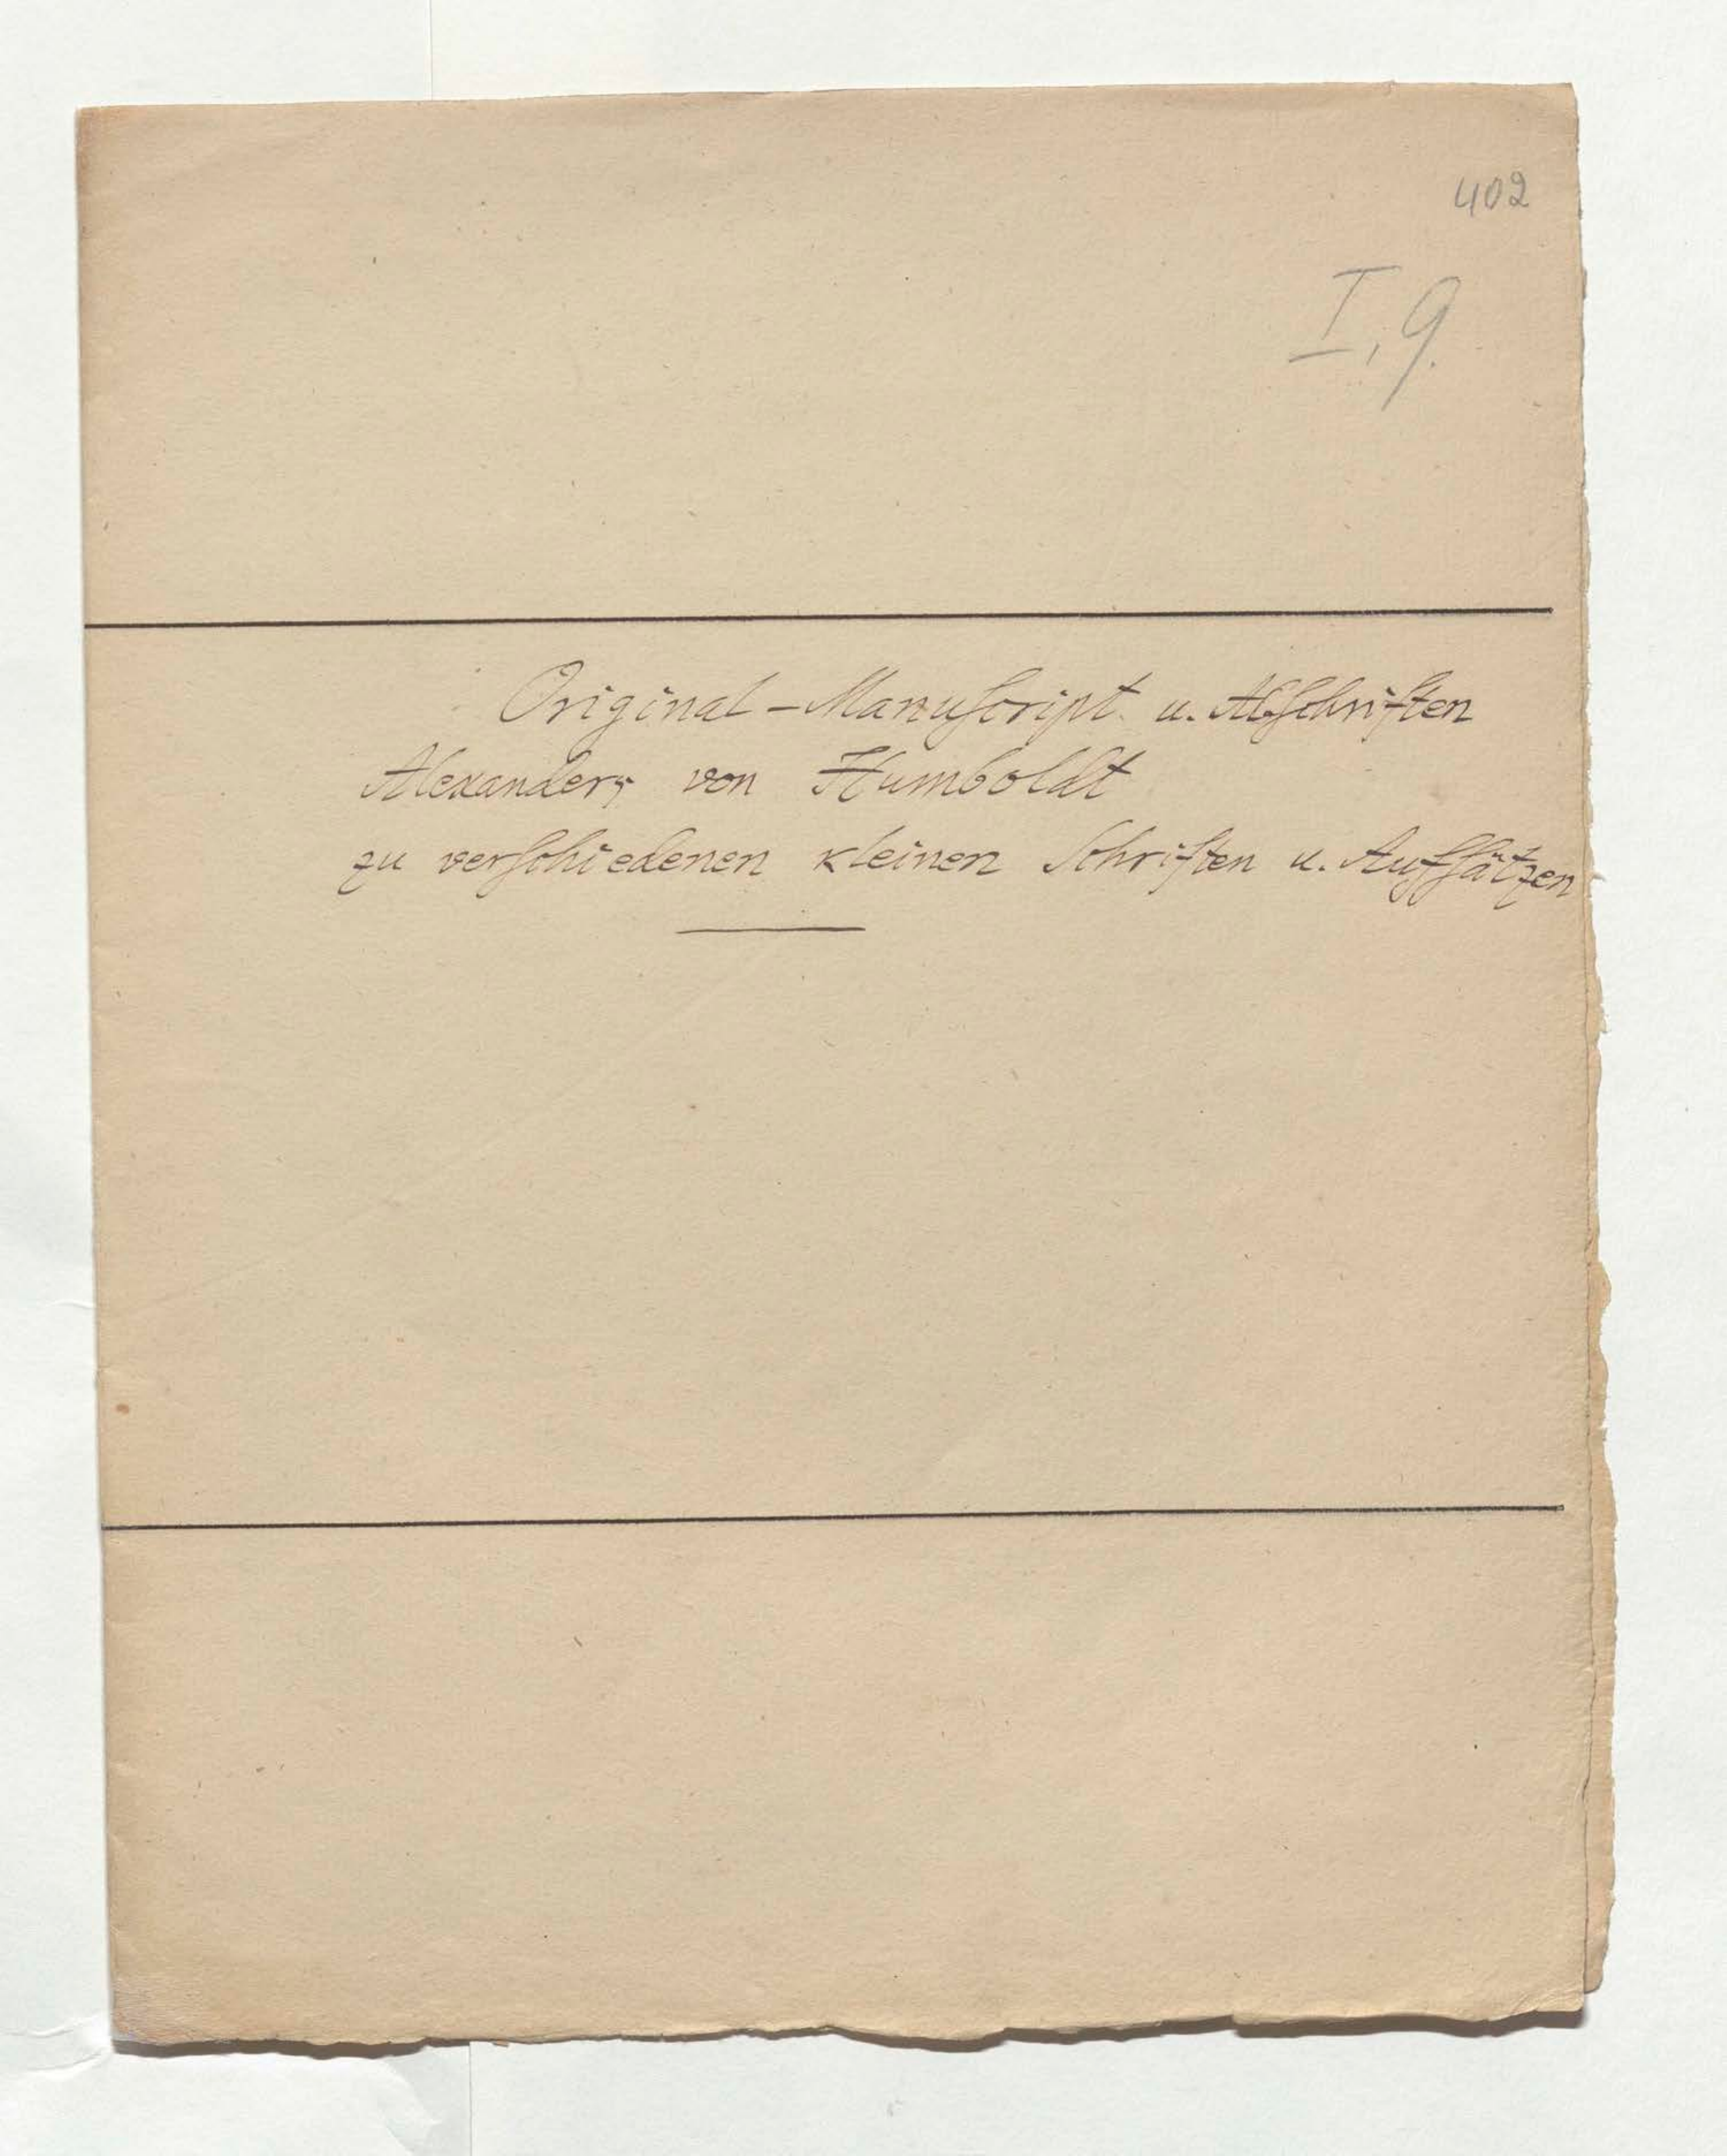 402
I, 9.
Original-Manuſcript u. Abſchriften
Alexanders von Humboldt
zu verſchiedenen kleinen Schriften u. Aufſätzen